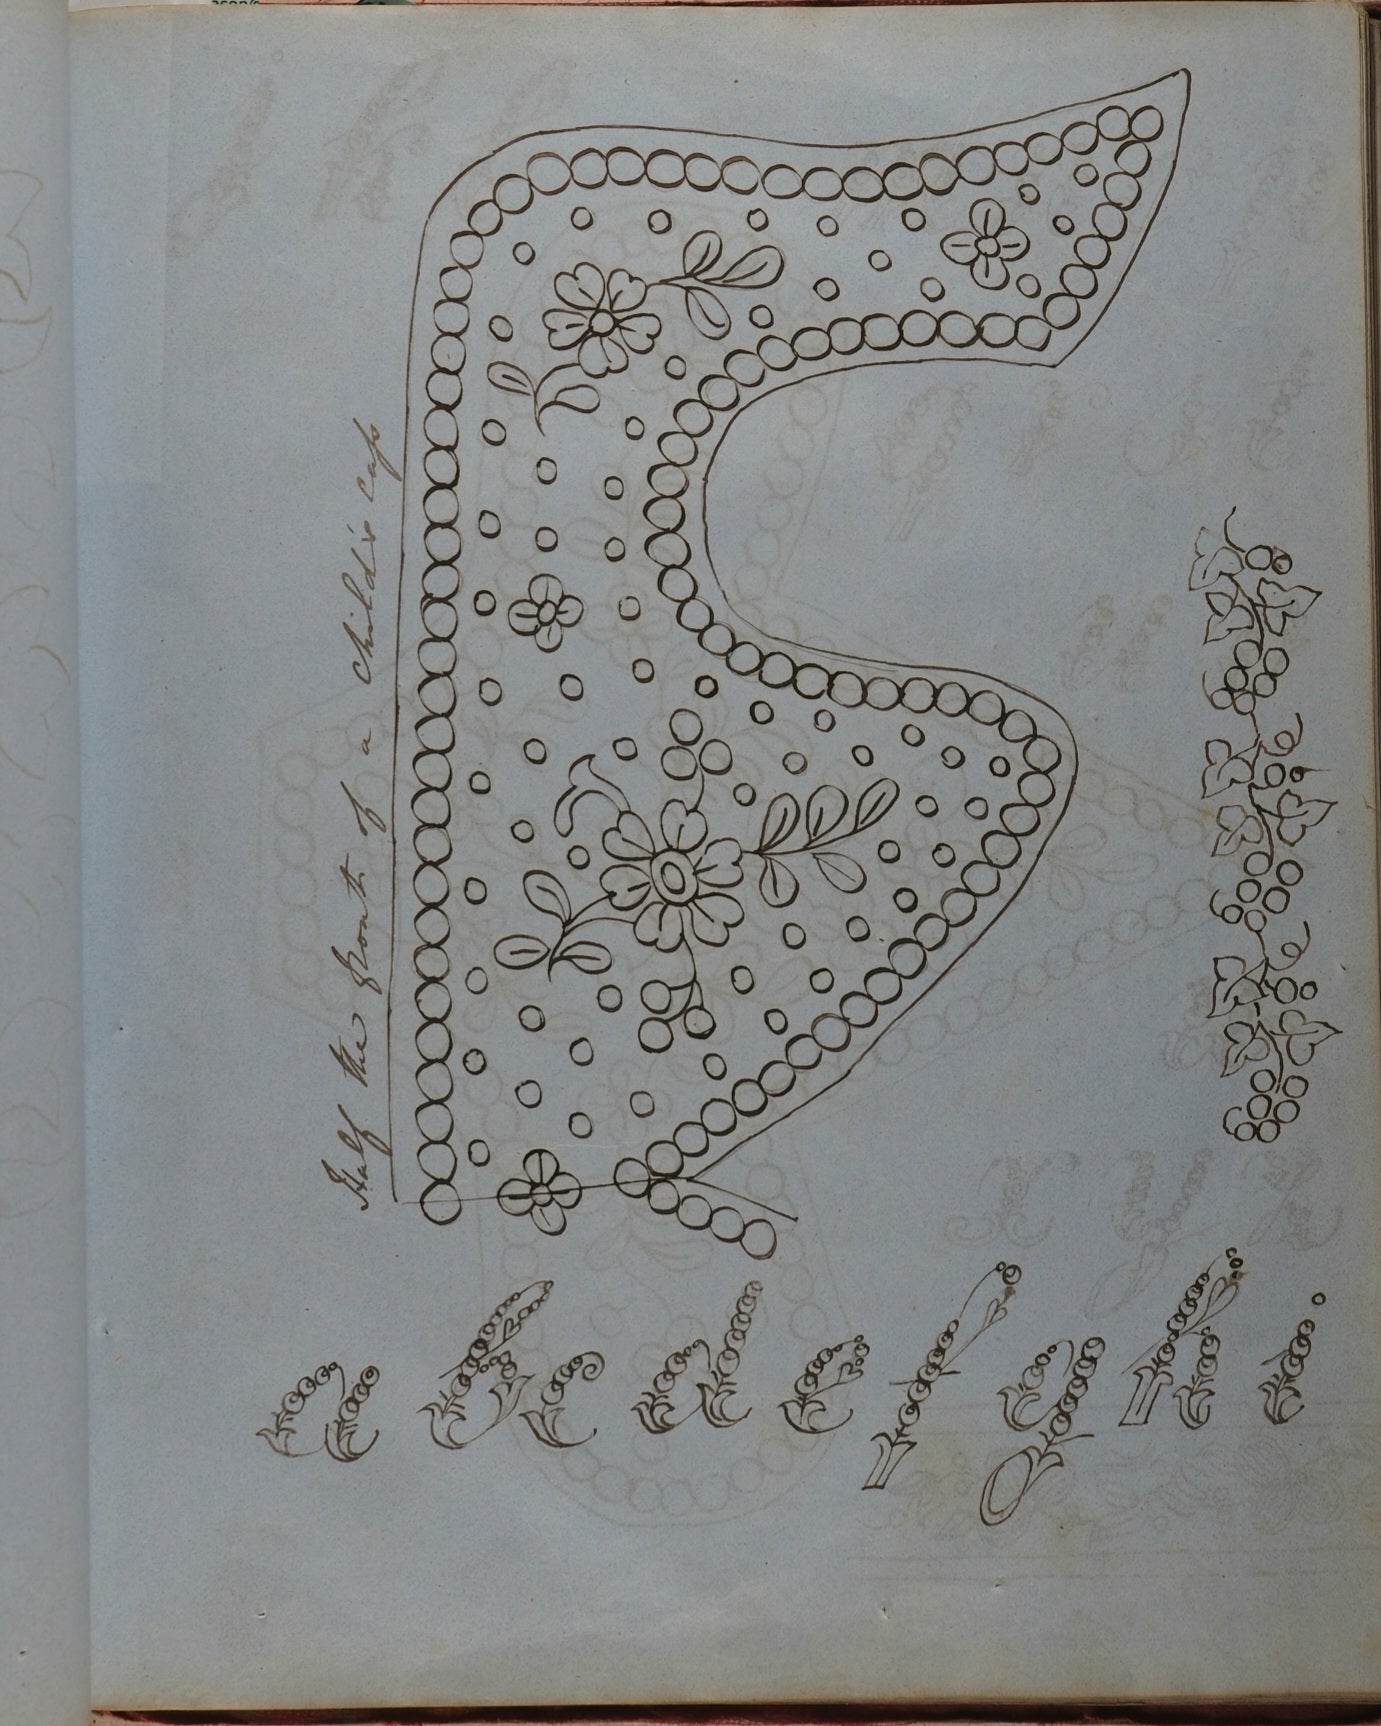 Half the front of a child's cap
a b c d e f g h i